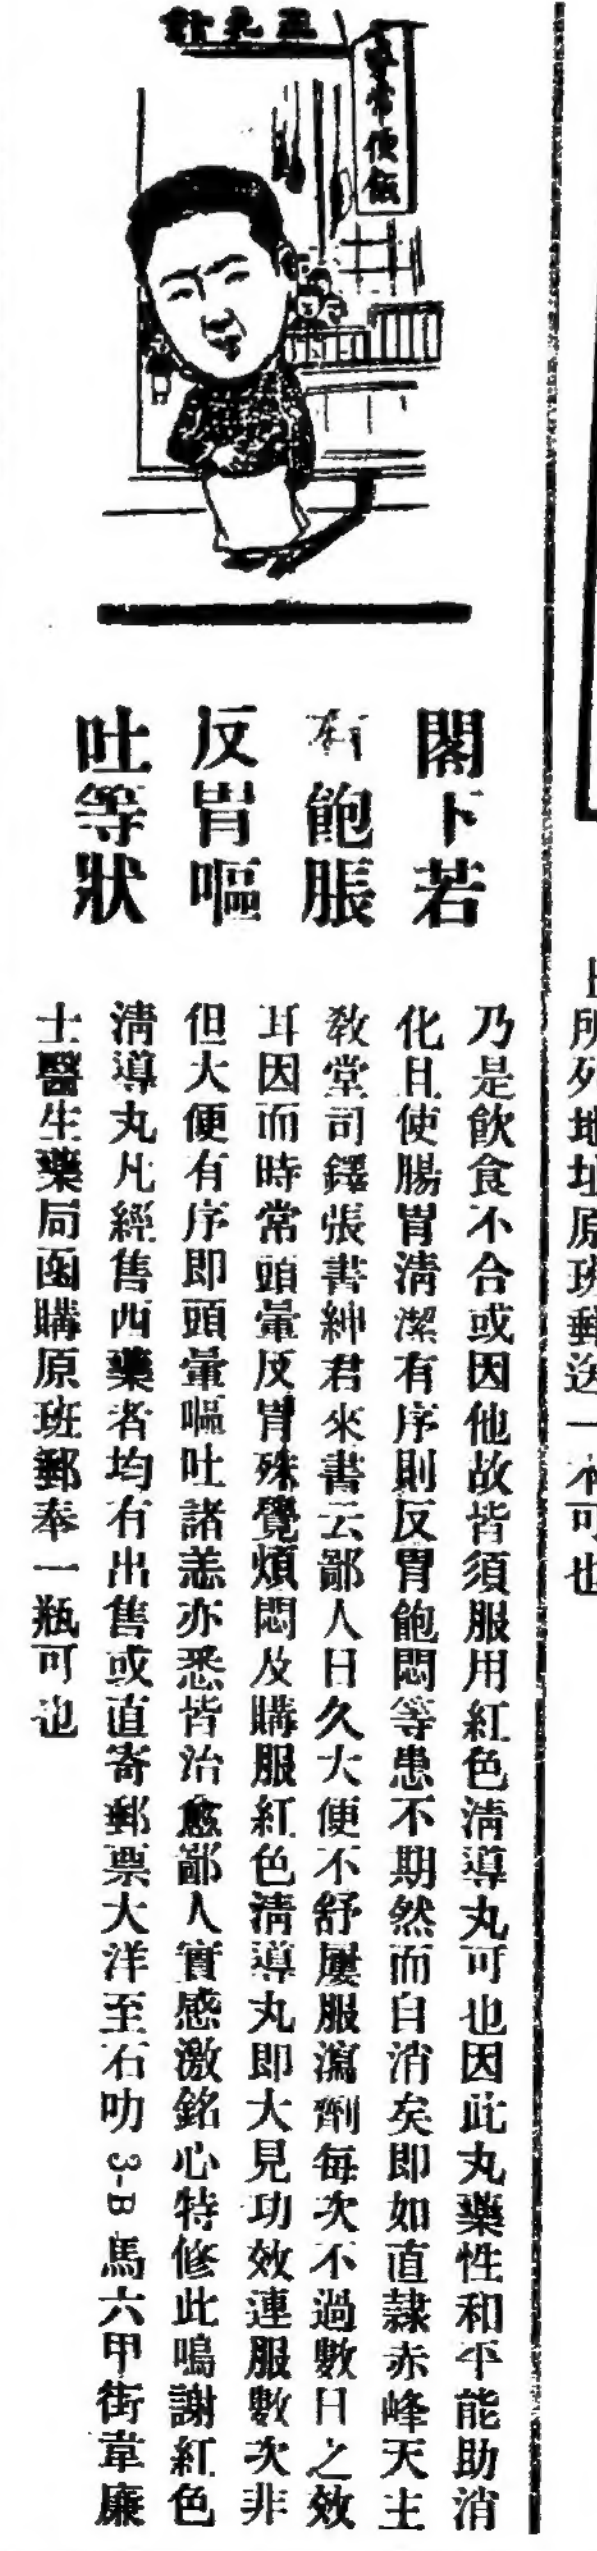 閣下若
有飽脹
反胃嘔
吐等狀
乃是飲食不合或因他故皆須服用紅色清導丸可也因此丸藥性和平能助消
化且使腸胃清潔有序則反胃飽悶等患不期然而自消矣即如直隸赤峰天主
教堂司鐸張書紳君來書云鄙人日久大便不舒屢服瀉劑每次不過數日之效
耳因而時常頭暈反胃殊覺煩悶及購服紅色清導丸即大見功效連服數次非
但大便有序即頭暈嘔吐諸恙亦悉皆治愈鄙人實感激銘心特修此鳴謝紅色
清導丸凡經售西藥者均有出售或直寄郵票大洋至石叻3-B馬六甲街韋廉
士醫生藥局函購原班郵奉一瓶可也
常便飯
所列地址原班郵送一不可也